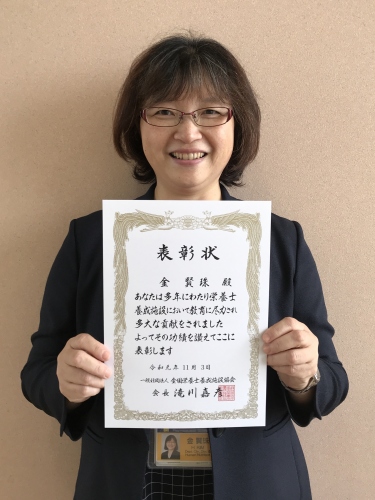 表彰状
金 賢珠 殿
あなたは多年にわたり栄養士
養成施設において教育に尽力され
多大な貢献をされました
よってその功績を讃えてここに
表彰します
令和元年11月3日
一般社団法人 全国栄養士養成施設協会
会長 滝川嘉彦